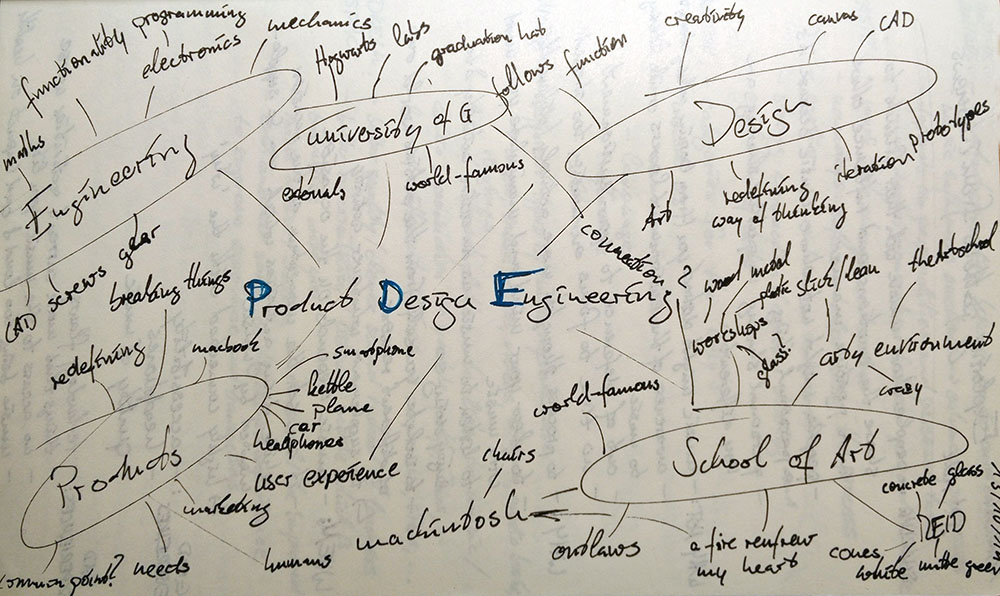 functionality
programming
electronics
mechanics
maths
Engineering
CAD
screws
gear
Hogwarts
labs
graduation hat
university of G
externals
world-famous
follows
function
creativity
canvas
CAD
Design
prototypes
iteration
redefining
way of thinking
Art
connection?
Product Design Engineering
breaking things
redefining
macbook
smartphone
kettle
plane
car
headphones
user experience
Products
marketing
common point?
needs
humans
wood
metal
plastic
workshops
glass?
theArtschool
arty environment
crazy
world-famous
School of Art
chairs
mackintosh
outlaws
a fire
my heart
concrete
glass
REID
white
green